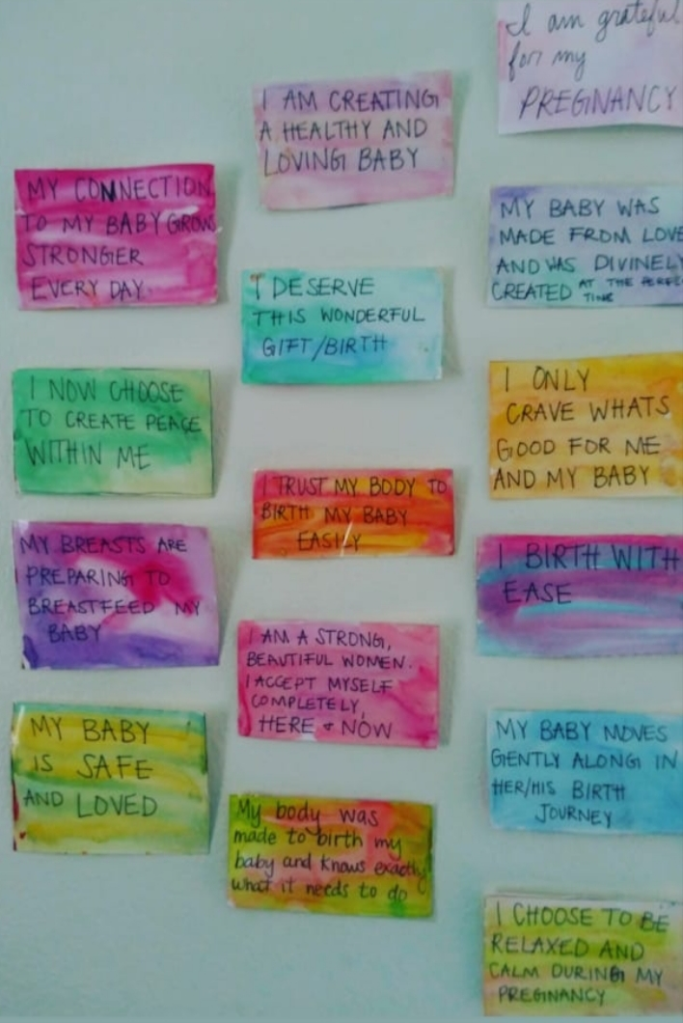 MY CONNECTION
TO MY BABY GROWS
STRONGER
EVERY DAY.
I NOW CHOOSE
TO CREATE PEACE
WITHIN ME
MY BREASTS ARE
PREPARING TO
BREASTFEED MY
BABY
MY BABY
IS SAFE
AND LOVED
I AM CREATING
A HEALTHY AND
LOVING BABY
I DESERVE
THIS WONDERFUL
GIFT/BIRTH
I TRUST MY BODY TO
BIRTH MY BABY
EASILY
I AM A STRONG,
BEAUTIFUL WOMEN.
I ACCEPT MYSELF
COMPLETELY,
HERE + NOW
My body was
made to birth my
baby and knows exactly
what it needs to do
I am grateful
for my
PREGNANCY
MY BABY WAS
MADE FROM LOVE
AND WAS DIVINELY
CREATED AT THE PERFECT
TIME
I ONLY
CRAVE WHATS
GOOD FOR ME
AND MY BABY
I BIRTH WITH
EASE
MY BABY MOVES
GENTLY ALONG IN
HER/HIS BIRTH
JOURNEY
I CHOOSE TO BE
RELAXED AND
CALM DURING MY
PREGNANCY